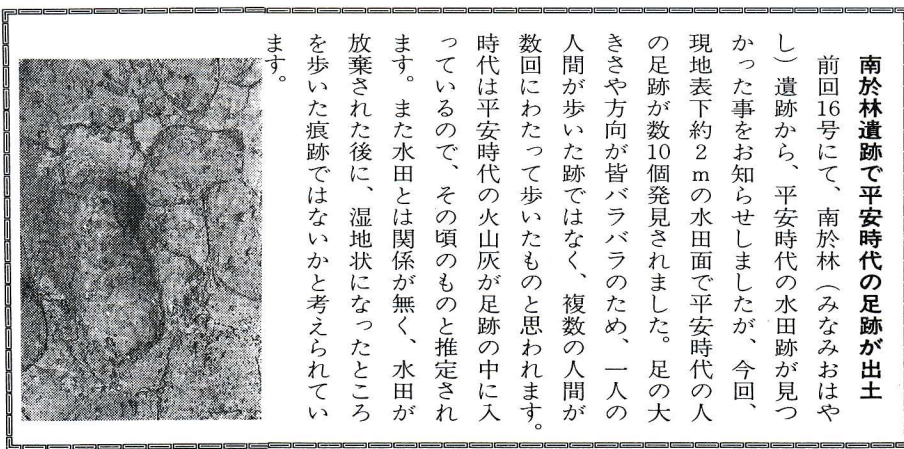 南於林遺跡で平安時代の足跡が出土
前回16号にて、南於林（みなみおはや
し）遺跡から、平安時代の水田跡が見つ
かった事をお知らせしましたが、今回、
現地表下約2mの水田面で平安時代の人
の足跡が数10個発見されました。足の大
きさや方向が皆バラバラのため、一人の
人間が歩いた跡ではなく、複数の人間が
数回にわたって歩いたものと思われます。
時代は平安時代の火山灰が足跡の中に入
っているので、その頃のものと推定され
ます。また水田とは関係が無く、水田が
放棄された後に、湿地状になったところ
を歩いた痕跡ではないかと考えられてい
ます。